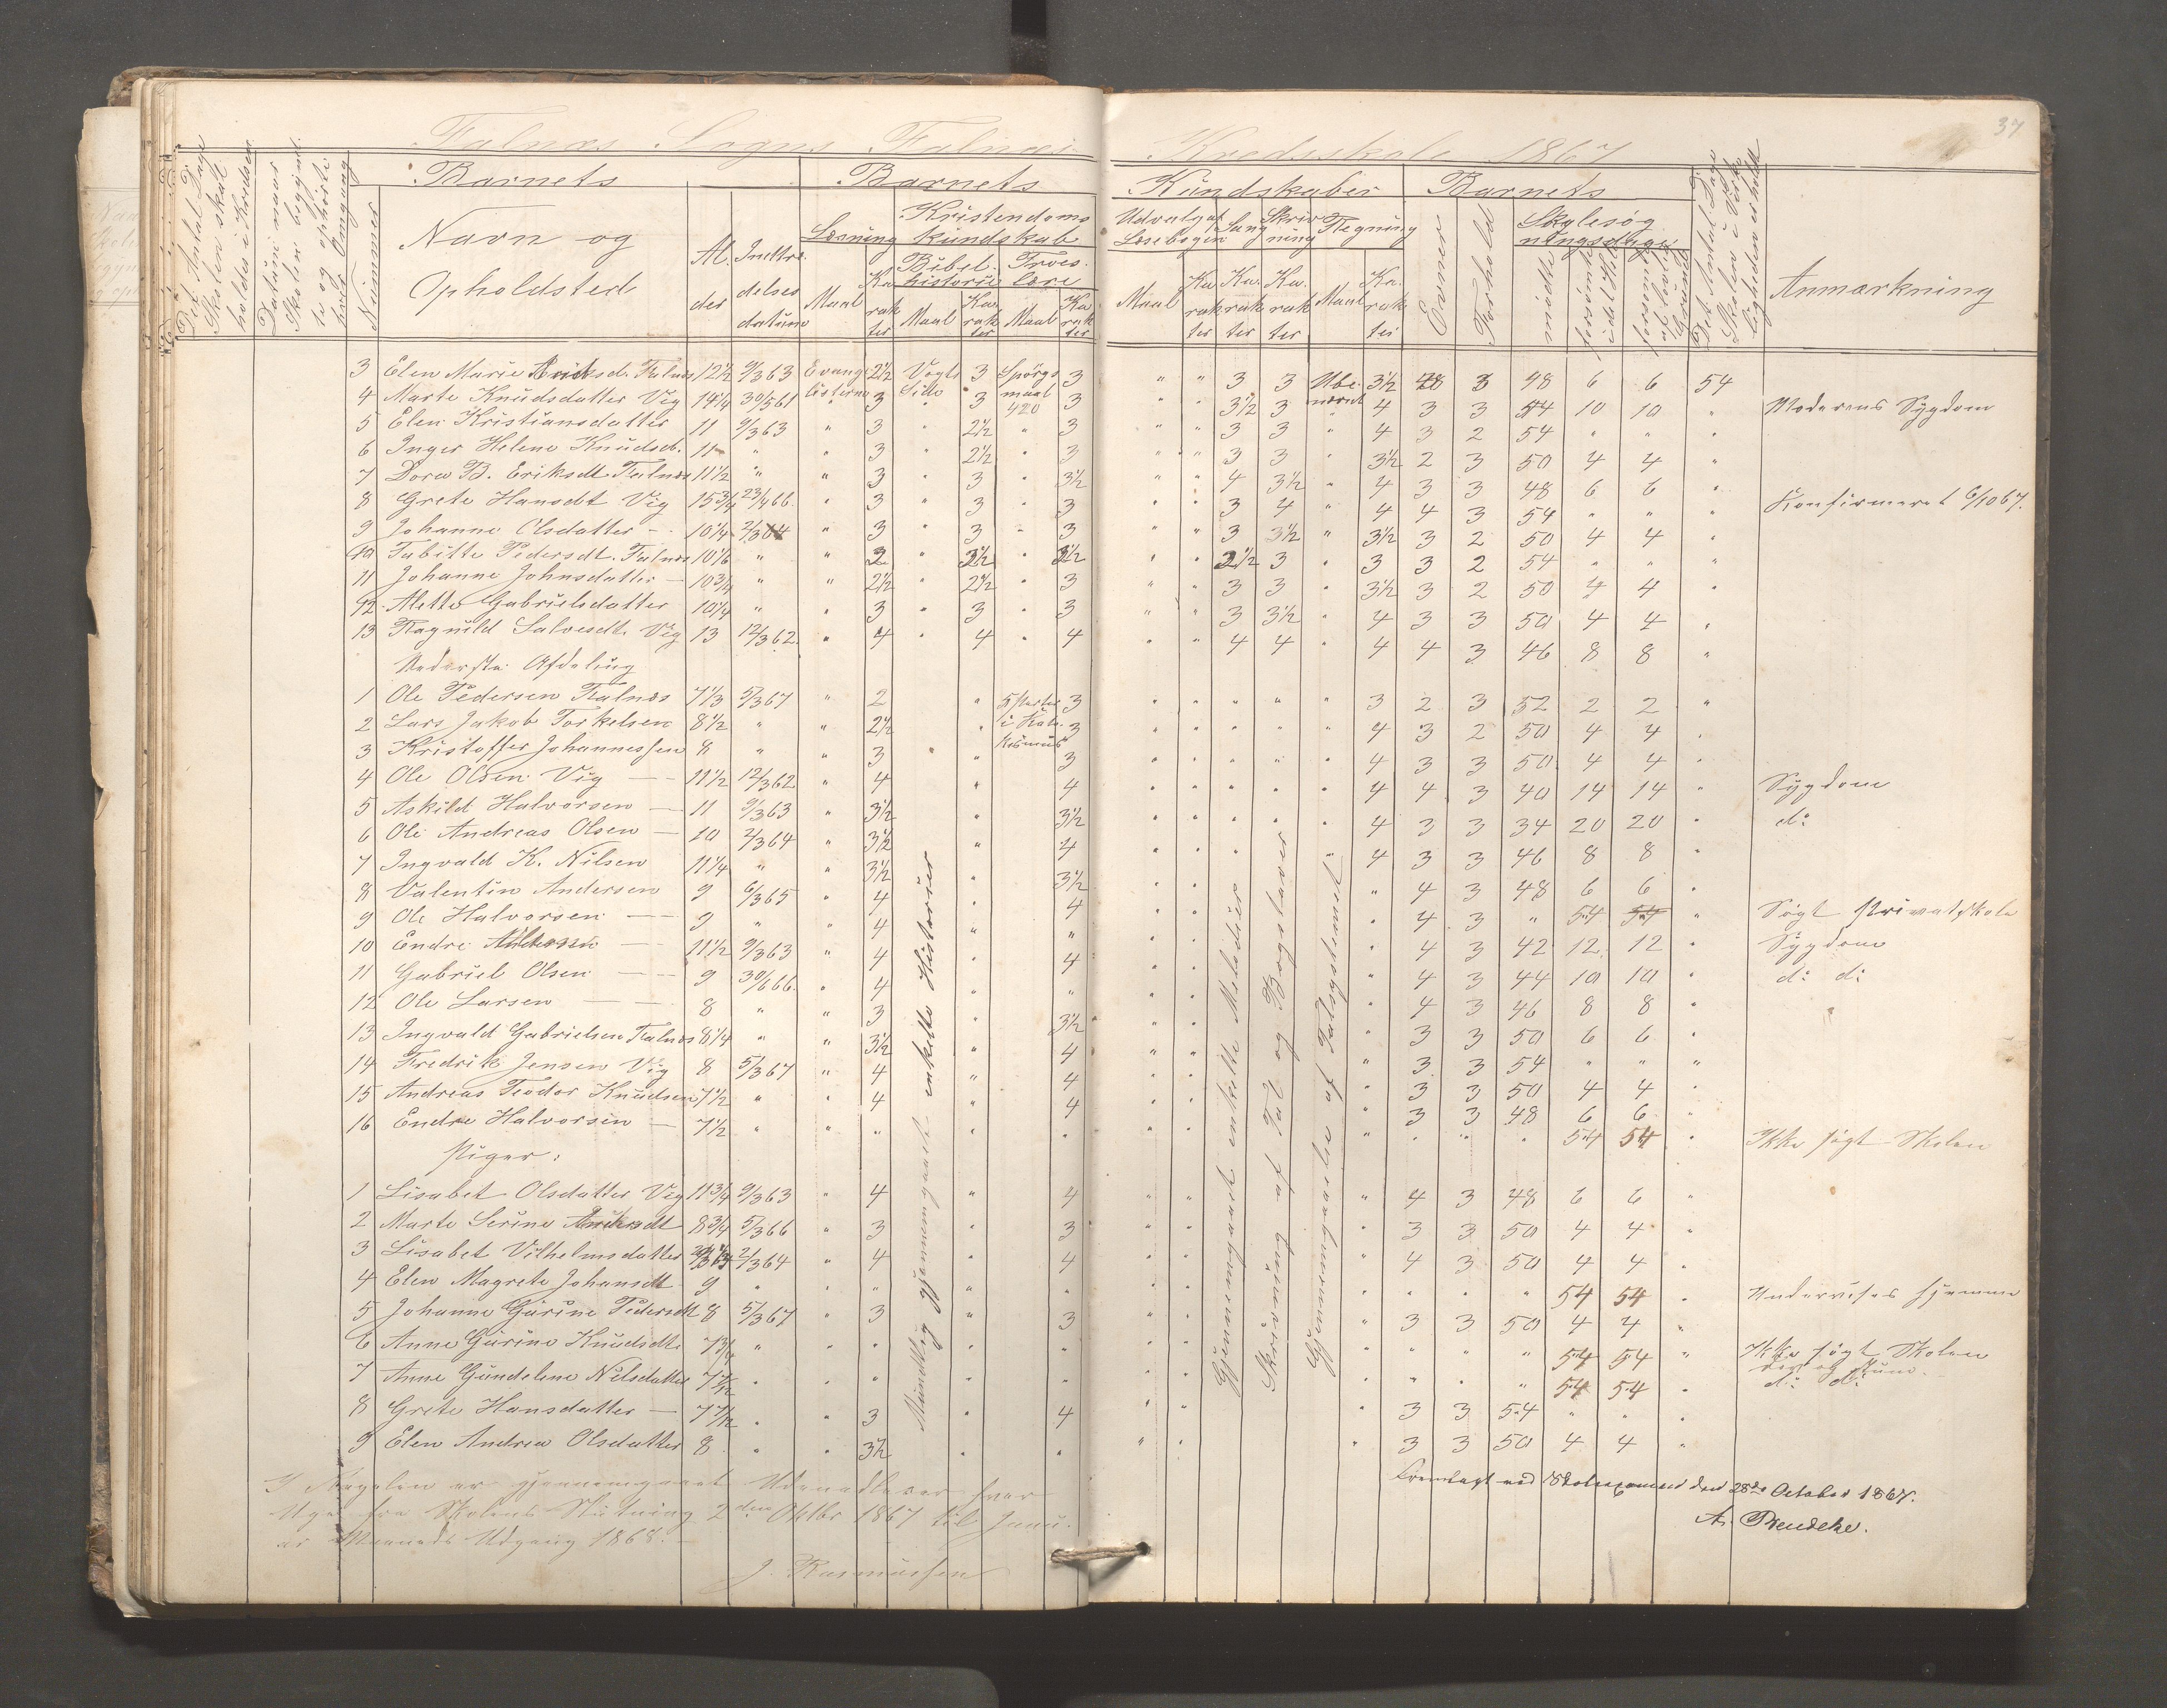 37
Falnæs Sogns Falnæs Kredsskole 1867
Det Antal Dage Skolen skal holdes i Kredsen
Datum naar Skolen begyndte og ophørte hver Omgang
Nummer
Barnets
Navn og Opholdsted
Alder
Indtrædelsesdatum
Barnets Kundskaber
Læsning
Kristendomskundskab
Bibelhistorie
Troeslære
Maal Karakter Maal Karakter Maal Karakter
Udvalgt Læsebogen
Sang
Skrivning
Regning
Maal Karakter Karakter Karakter Maal Karakter
Barnets
Evner
Forhold
Skolesøgningsdage
mødte
forsømte i det Hele
forsømte af lovlig Grund
Det Antal Dage Skolen i Virkeligheden er holdt
Anmærkning
3 Elen Marie Eriksd. Falnæs 12½ 9/3 63 Evangelisterne 2½ Vogts Lille 3 Spørgsmaal 420 3 " " 3 3 Ubenævnt 3½ 3 3 48 6 6 54
4 Marte Knudsdatter Vig 14¼ 30/5 61 " 3 " 3 3 " " 3½ 3 " 4 3 3 44 10 10 " Moderens Sygdom
5 Elen Kristiansdatter 11 9/3 63 " 3 " 2½ " 3 " " 3 3 " 4 3 2 54 " " "
6 Inger Helene Knudsd. 11 " " 3 " 2½ " 3 " " 3 3 " 3½ 2 3 50 4 4 "
7 Dora B. Eriksdt Falnæs 11½ " " 3 " 3 " 3½ " " 4 3½ " 4 3 3 48 6 6 "
8 Grete Hansdt Vig 15¾ 23/4 66 " 3 " 3 " 3 " " 3 4 " 4 4 3 54 " " " Konfirmeret 6/10 67.
9 Johanne Olsdatter — 10¼ 2/3 64 " 3 " 3 " 3 " " 3 3½ " 3½ 3 2 50 4 4 "
10 Tabitte Pedersdt. Falnæs 10⅙ " " 2 " 2½ " 2½ " " 2½ 3 " 3 3 2 54 " " "
11 Johanne Johnsdatter — 10¾ " " 2½ " 2½ " 3 " " 3 3 " 3½ 3 2 50 4 4 "
12 Alette Gabrielsdatter 10¼ " " 3 " 3 " 3 " " 3 3½ " 4 3 3 50 4 4 "
13 Ragnild Salvesdt. Vig 13 12/3 62 " 4 " 4 " 4 " " 4 4 " 4 4 3 46 8 8 "
Nederste Afdeling
1 Ole Pedersen Falnæs 7⅓ 5/3 67 " 2 " 5 Parter i Katekismus 3 " " " " " 3 2 3 52 2 2 "
2 Lars Jakob Torkelsen 8½ " " 2½ " 3 " " " " " 4 3 2 50 4 4 "
3 Kristoffer Johannessen 8 " " 3 " " 3 " " " " " 4 3 3 50 4 4 "
4 Ole Olsen Vig — 11½ 12/3 62 " 4 " 4 " " " " " 4 4 3 40 14 14 " Sygdom
5 Askild Halvorsen — 11 9/3 63 " 3½ " 3½ " " " " " 4 3 3 34 20 20 " do
6 Ole Andreas Olsen — 10 2/3 64 " 3½ " 4 " " " " 4 3 3 46 8 8 "
7 Ingvald K. Nilsen 11¼ " " 3½ " 3½ " " " 4 3 48 6 6 "
8 Valentin Andersen 9 6/3 65 " 4 " 4 " " " 4 3 " 54 54 " Søgt Privatskole
9 Ole Halvorsen — 9 " " 4 " " " " " 4 3 42 12 12 " Sygdom
10 Endre — 11½ 9/3 63 " 4 " 4 " " " 4 3 44 10 10 " do do
11 Gabriel Olsen — 9 30/6 66 " 4 " " " " " 4 3 46 8 8 "
12 Ole Larsen — 8 " " 3 " 3½ " " " 3 3 50 6 6 "
13 Ingvald Gabrielsen Falnæs 8¼ " " 3½ " 4 " " " 3 3 54 " " "
14 Fredrik Jensen Vig 8 5/3 67 " 4 " 4 " " " 3 3 50 4 4 "
15 Andreas Teodor Knudsen 7½ " " 4 " 4 " " " 3 3 48 6 6 "
16 Endre Halvorsen — 7½ " " " " " " " " " " " 54 54 " Ikke søgt Skolen
Piger:
1 Lisabet Olsdatter Vig 11¾ 9/3 63 " 4 " 4 " " " 4 3 48 6 6 "
2 Marte Serine 8¾ 5/3 66 " 3 " 3 " " 3 3 50 4 4 "
3 Lisabet Vilhelmsdatter 2/3 64 " 4 " 4 " " 4 3 50 4 4 "
4 Elen Magrete Johansdt 9 " " " " " " " " " " 54 54 " Undervises hjemme
5 Johanne Gurine Pedersdt 8 5/3 67 " 3 " 3 " " " 3 3 50 4 4 "
6 Anne Gurine Knudsdt. 7¾ " " " " " " " " " " " 54 54 " Ikke søgt Skolen
7 Anne Gundeline Nilsdatter 7 7/12 " " " " " " " " " " 54 54 " do do
8 Grete Hansdatter — 7 7/12 " " 3 " 4 " " " 3 3 54 " " "
9 Elen Andrea Olsdatter 8 " " 3½ " " " " " 3 3 50 4 4 "
Mundtlig gjennemgaaet enkelte Historier
Gjennemgaaet enkelte Melodier
Skrivning af Tal og Bogstaver
Gjennemgaaelse af Talsystemet
I Regelen er gjennemgaaet Udenadlexer hver
Uge fra Skolens Slutning 2den Oktbr 1867 til Janu-
ar Maaneds Udgang 1868.—
J. Rasmussen
Fremlagt ved Skoleexamen den 28de October 1867.